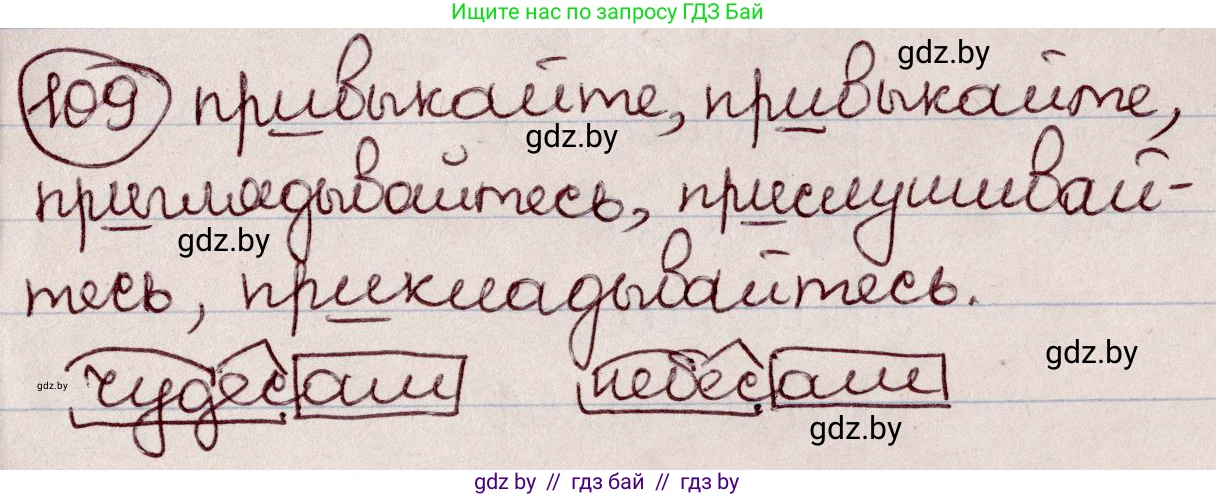 Ищите нас по запросу ГДЗ Бай
gdz.by
109 привыкайте, привыкайте,
gdz.by
приглядывайтесь, прислушивай-
gdz.by
тесь, прикладывайтесь.
gdz.by
gdz.by чудесам небесам
gdz.by
gdz.by // гдз бай // гдз by